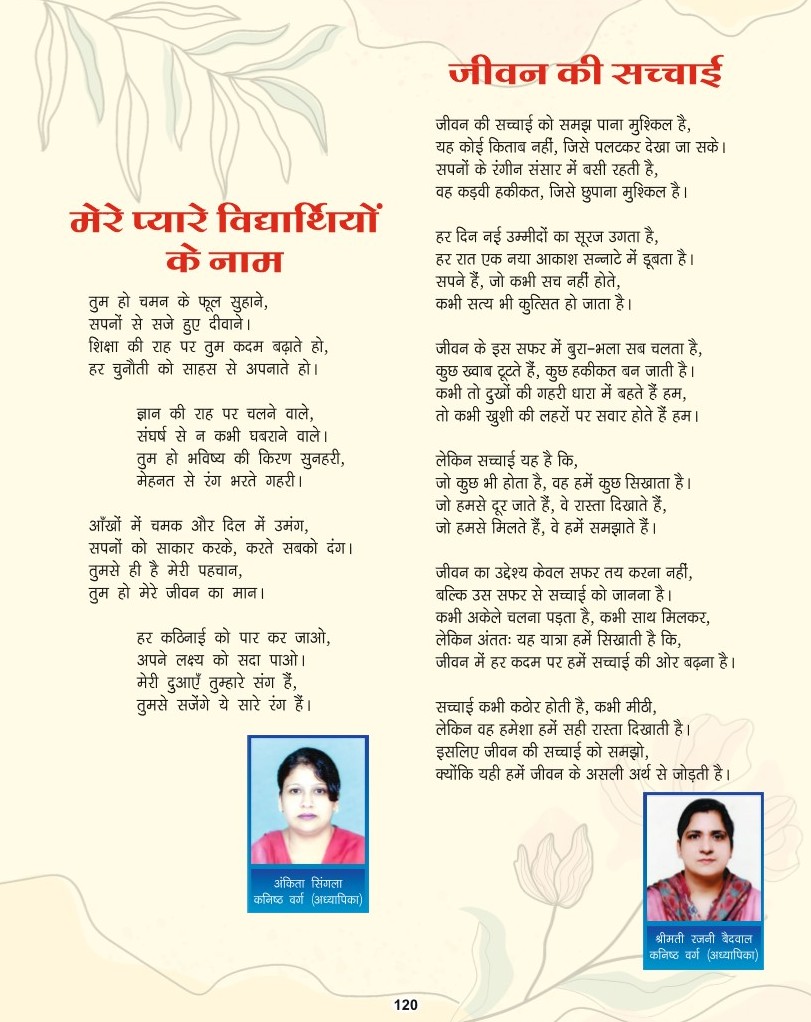 मेरे प्यारे विद्यार्थियों
के नाम
तुम हो चमन के फूल सुहाने,
सपनों से सजे हुए दीवाने।
शिक्षा की राह पर तुम कदम बढ़ाते हो,
हर चुनौती को साहस से अपनाते हो।
ज्ञान की राह पर चलने वाले,
संघर्ष से न कभी घबराने वाले।
तुम हो भविष्य की किरण सुनहरी,
मेहनत से रंग भरते गहरी।
आँखों में चमक और दिल में उमंग,
सपनों को साकार करके, करते सबको दंग।
तुमसे ही है मेरी पहचान,
तुम हो मेरे जीवन का मान।
हर कठिनाई को पार कर जाओ,
अपने लक्ष्य को सदा पाओ।
मेरी दुआएँ तुम्हारे संग हैं,
तुमसे सजेंगे ये सारे रंग हैं।
अंकिता सिंगला
कनिष्ठ वर्ग (अध्यापिका)
जीवन की सच्चाई
जीवन की सच्चाई को समझ पाना मुश्किल है,
यह कोई किताब नहीं, जिसे पलटकर देखा जा सके।
सपनों के रंगीन संसार में बसी रहती है,
वह कड़वी हकीकत, जिसे छुपाना मुश्किल है।
हर दिन नई उम्मीदों का सूरज उगता है,
हर रात एक नया आकाश सन्नाटे में डूबता है।
सपने हैं, जो कभी सच नहीं होते,
कभी सत्य भी कुत्सित हो जाता है।
जीवन के इस सफर में बुरा-भला सब चलता है,
कुछ ख्वाब टूटते हैं, कुछ हकीकत बन जाती है।
कभी तो दुखों की गहरी धारा में बहते हैं हम,
तो कभी खुशी की लहरों पर सवार होते हैं हम।
लेकिन सच्चाई यह है कि,
जो कुछ भी होता है, वह हमें कुछ सिखाता है।
जो हमसे दूर जाते हैं, वे रास्ता दिखाते हैं,
जो हमसे मिलते हैं, वे हमें समझाते हैं।
जीवन का उद्देश्य केवल सफर तय करना नहीं,
बल्कि उस सफर से सच्चाई को जानना है।
कभी अकेले चलना पड़ता है, कभी साथ मिलकर,
लेकिन अंततः यह यात्रा हमें सिखाती है कि,
जीवन में हर कदम पर हमें सच्चाई की ओर बढ़ना है।
सच्चाई कभी कठोर होती है, कभी मीठी,
लेकिन वह हमेशा हमें सही रास्ता दिखाती है।
इसलिए जीवन की सच्चाई को समझो,
क्योंकि यही हमें जीवन के असली अर्थ से जोड़ती है।
श्रीमती रजनी बैदवाल
कनिष्ठ वर्ग (अध्यापिका)
120